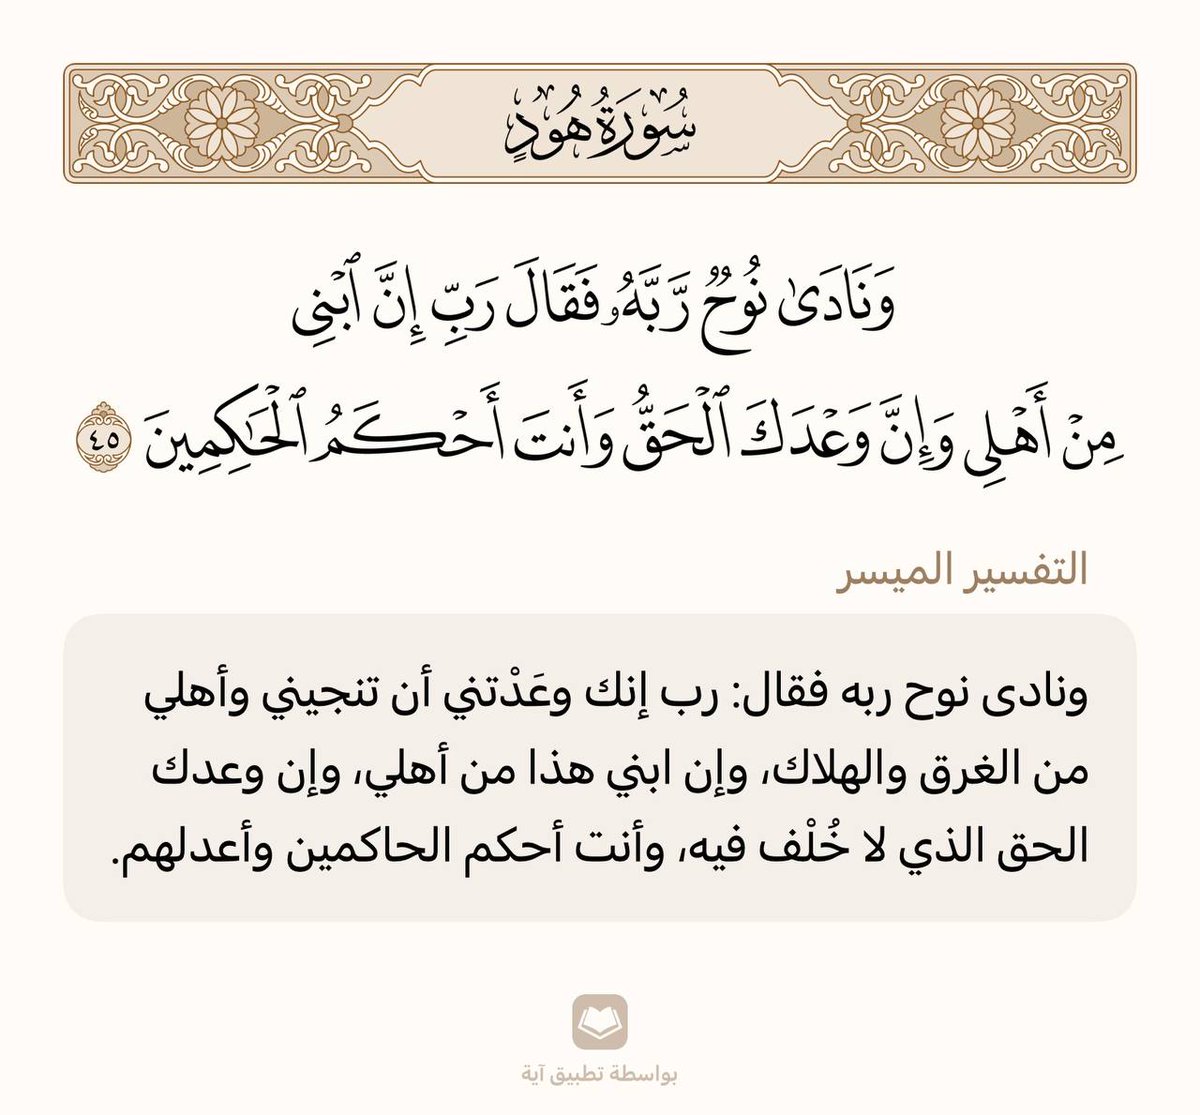 سُورَةُ هُودٍ
وَنَادَىٰ نُوحٌ رَّبَّهُۥ فَقَالَ رَبِّ إِنَّ ٱبْنِى
مِنْ أَهْلِى وَإِنَّ وَعْدَكَ ٱلْحَقُّ وَأَنتَ أَحْكَمُ ٱلْحَـٰكِمِينَ ٤٥
التفسير الميسر
ونادى نوح ربه فقال: رب إنك وعَدْتني أن تنجيني وأهلي
من الغرق والهلاك، وإن ابني هذا من أهلي، وإن وعدك
الحق الذي لا خُلْف فيه، وأنت أحكم الحاكمين وأعدلهم.
بواسطة تطبيق آية